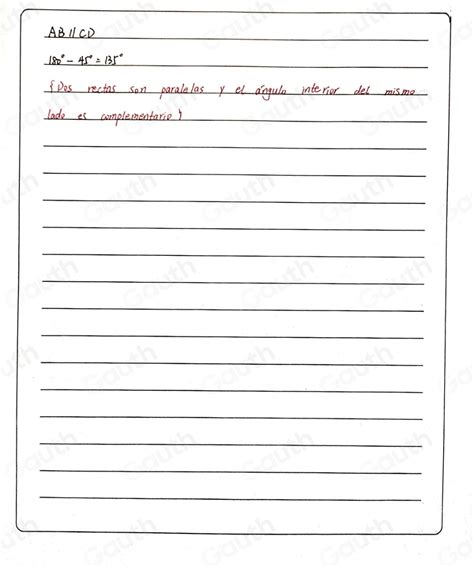 AB // CD
180° - 45° = 135°
{Dos rectas son paralelas y el ángulo interior del mismo
lado es complementario}